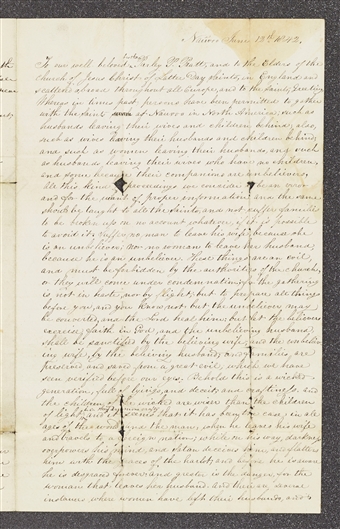 Nauvoo June 12th 1842.
To our well beloved brother Parley P. Pratt, and to the Elders of the
church of Jesus Christ of Latter Day Saints, in England and
scattered abroad throughout all Europe, and to the Saints, Greeting
Whereas in times past persons have been permitted to gather
with the Saints at Nauvoo in North America, such as
husbands leaving their wives and children behind; also,
such as wives leaving their husbands and children behind;
and such as women leaving their husbands, and such
as husbands leaving their wives who have no children,
and some because their companions are unbelievers.
All this kind proceedings we consider to be an error
and for the want of proper information and the same
should be taught to all the Saints, and not suffer families
to be broken up on no account whatever if it is possible
to avoid it. suffer no man to leave his wife because she
is an unbeliever; Nor no woman to leave her husband,
because he is an unbeliever. These things are an evil
and must be forbidden by the authorities of the church,
or they will come under condemnation; for the gathering
is not in haste, nor by flight; but to prepare all things
before you, and you know not but the unbeliever may
be converted, and the Lord heal him; but let the believers
exercise faith in God, and the unbelieving husband
shall be sanctified by the believing wife; and the unbeliev-
ing wife, by the believing husband; and families, are
preserved and saved from a great evil, which we have
seen verified before our eyes. Behold this is a wicked
generation, full of lyings, and deceit, and craftiness; and
the children of the wicked are wiser than the children
of light; and it seems that it has been the case, in all
ages of the world and the man, when he leaves his wife
and travels to a foreign nation, while on his way, darkness
overpowers his mind, and Satan deceives him, and flatters
him with the graces of the harlot, and before he is aware
he is disgraced forever; and greater is the danger, for the
woman that leaves her husband. and there are several
instances where women have left their husbands, and